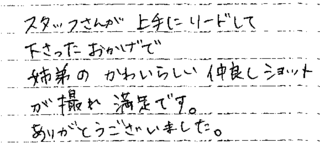 スタッフさんが 上手にリードして
下さったおかげで
姉弟の かわいらしい 仲良しショット
が撮れ 満足です。
ありがとうございました。